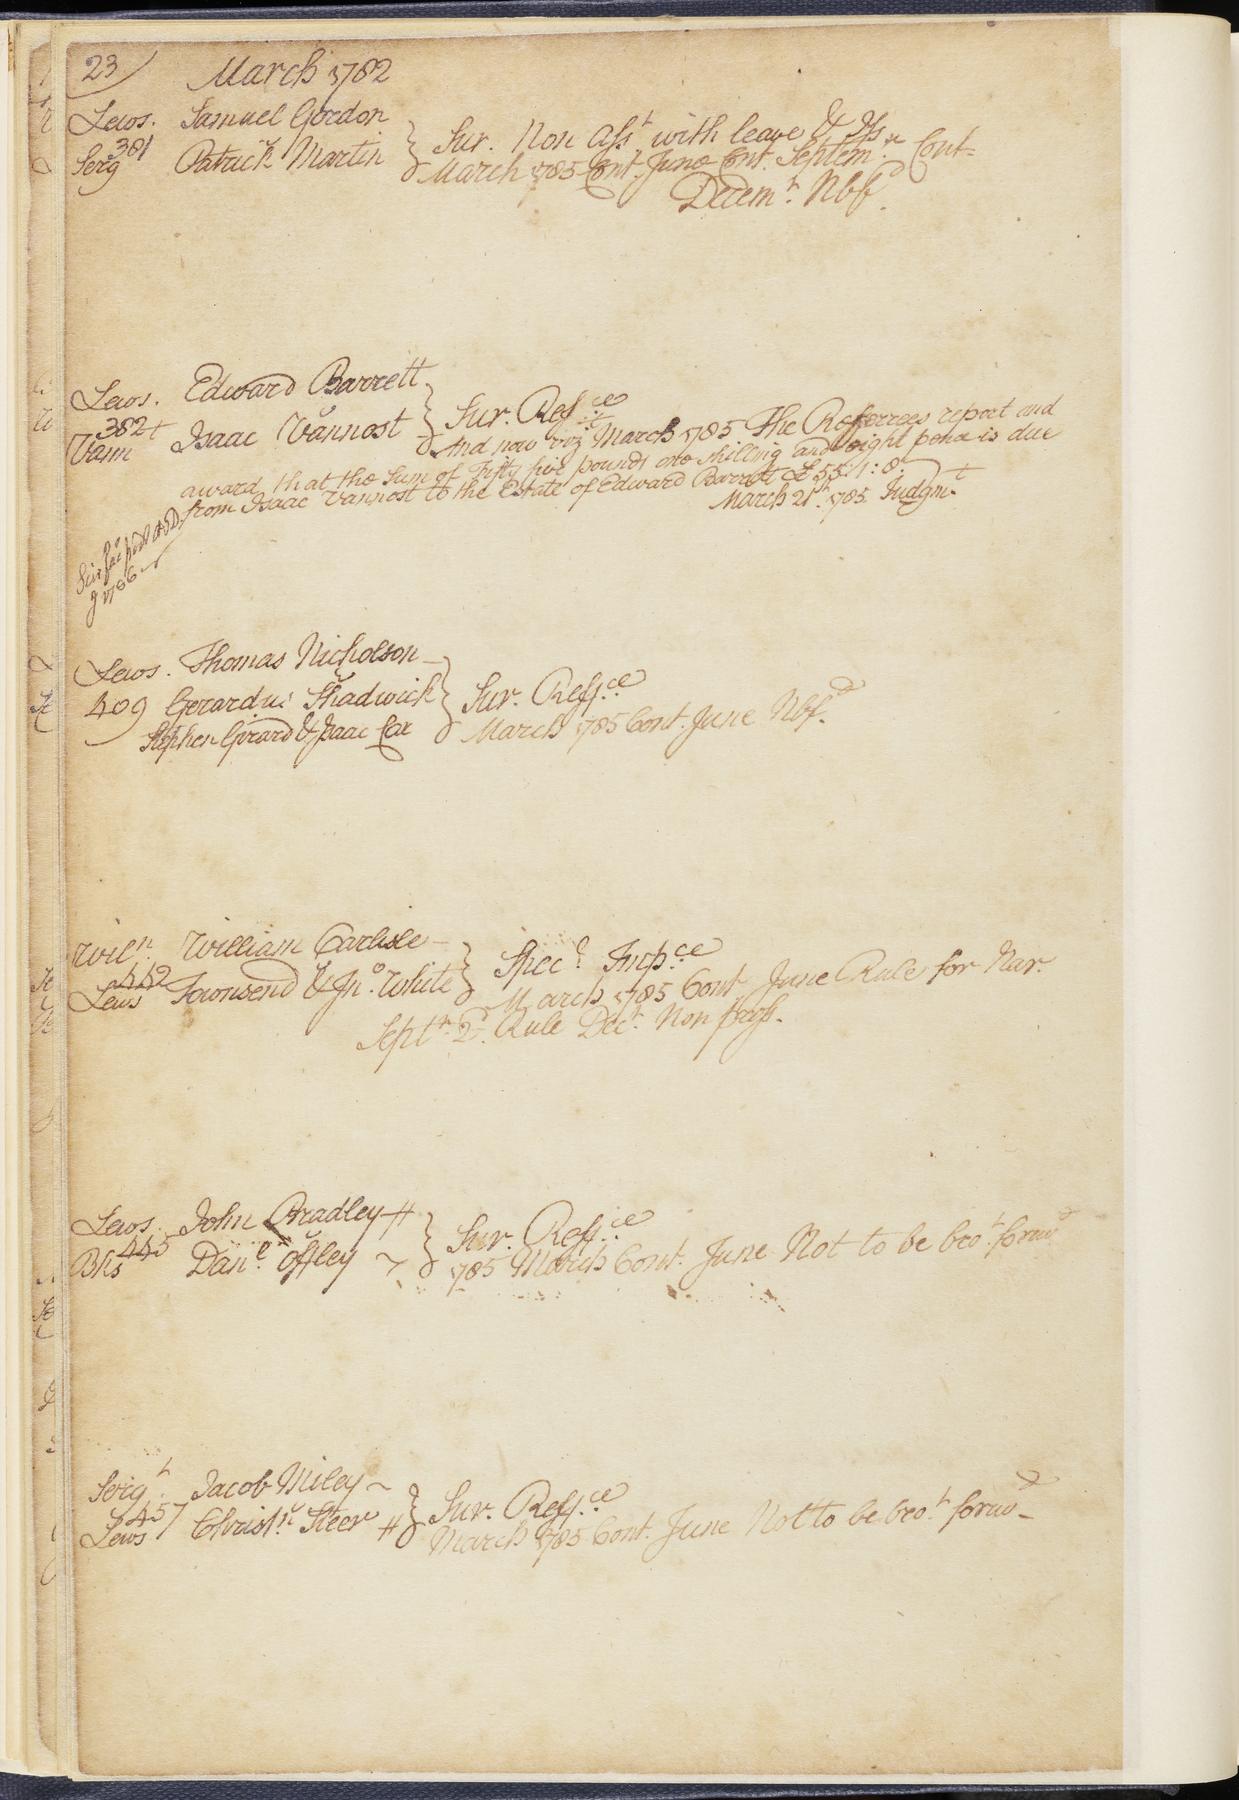 23 March 1782
Lews. Samuel Gordon
381 Sur. Non Asst. with leave & Iss
Serg Patrick Martin March 1785 Cont. June Cont. Septem.r Cont-
Decemr. Nbfd.
Lews. Edward Barrett
382 Sur. Refce
Vann Isaac Vannost And now viz March 1785 The Referrees report and
award that the Sum of Fifty five pounds one shilling and eight pence is due
from Isaac Vannost to the Estate of Edward Barrett £55:1:8.
March 21st. 1785 Judgmt
1786
Lews. Thomas Nicholson
409 Gerardus Shadwick Sur. Refce
Stephen Girard & Isaac Cox March 1785 Cont. June Nbfd.
Wiln. William Carlisle Specl. Impce
442
Lews Townsend & Jno. White March 1785 Cont June Rule for Nar.
Septr. 2d. Rule Decr. Non pross.
Lews. John Bradley Sur. Refce
445
Bks Danl. Offley 1785 March Cont. June Not to be brot. forwd
Sergt. Jacob Miley Sur. Refce
457
Lews Christn. Steer March 1785 Cont. June Not to be brot. forwd